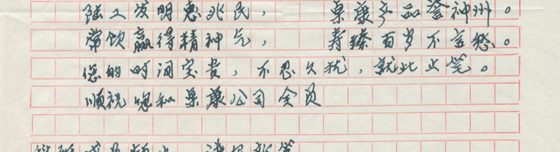 陆工发明惠兆民，　　果康产品誉神州。
常饮赢得精神气，　　寿臻百岁不呈愁。
您的时间宝贵，不忍久扰，就此止笔。
顺祝您和果康公司全员